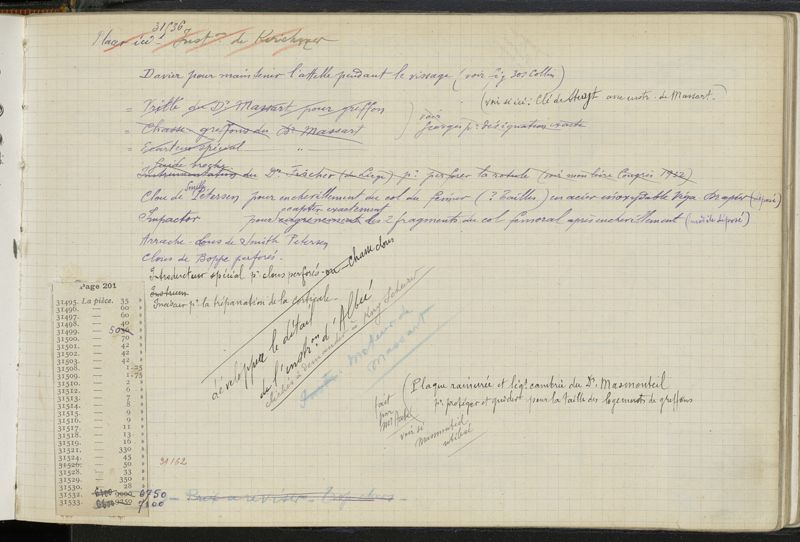 31936
Placer ici Inst^on de Kirschner
Davier pour maintenir l'attelle pendant le vissage (voir fig 305 Collin)
(voir si ici: Clé de instr. de Massart.
= Vrille du Dr Massart pour greffon
= Chasse-greffons du Dr Massart
voir Georges pr désignation exacte
= Ecarteur spécial "
Guide broche
Instrumentation du Dr Fischer (de Liège) pr perforer la rotule (voir mémoire Congrès 1932)
Smith
Clou de Petersen pour enchevillement du col du fémur (3 tailles) en acier inoxydable (déposé)
coapter exactement
Impactor pour engrènement des 2 fragments du col fémoral après enchevillement (modèle déposé)
Arrache-clous de Smith Petersen
Clous de Boppe perforés.
Introducteur spécial pr clous perforés ou Chasse clous
Instrum
Inciseur pr la trépanation de la corticale.
développer le détail
de l'instr^on d'Albee
clichés à demander à King Scheerer
Moteur de
Massart
fait
par
Mr
voir si
Masmonteil
utilisé
Plaque rainurée et légt cambrée du Dr. Masmonteil
pr protéger et guider pour la taille des logements de greffons
Page 201
31495. La pièce. 35 »
31496. — 60 »
31497. — 60 »
31498. — 40 »
31499. — 50 »
31500. — 70 »
31501. — 42 »
31502. — 42 »
31503. — 42 »
31508. — 1 25
31509. — 1 75
31510. — 2 »
31512. — 6 »
31513. — 7 »
31514. — 8 »
31515. — 9 »
31516. — 9 »
31517. — 11 »
31518. — 13 »
31519. — 16 »
31521. — 330 »
31524. — 45 »
31526. — 50 »
31528. — 33 »
31529. — 350 »
31530. — 28 »
31532. 6750
31533. 7100
31162